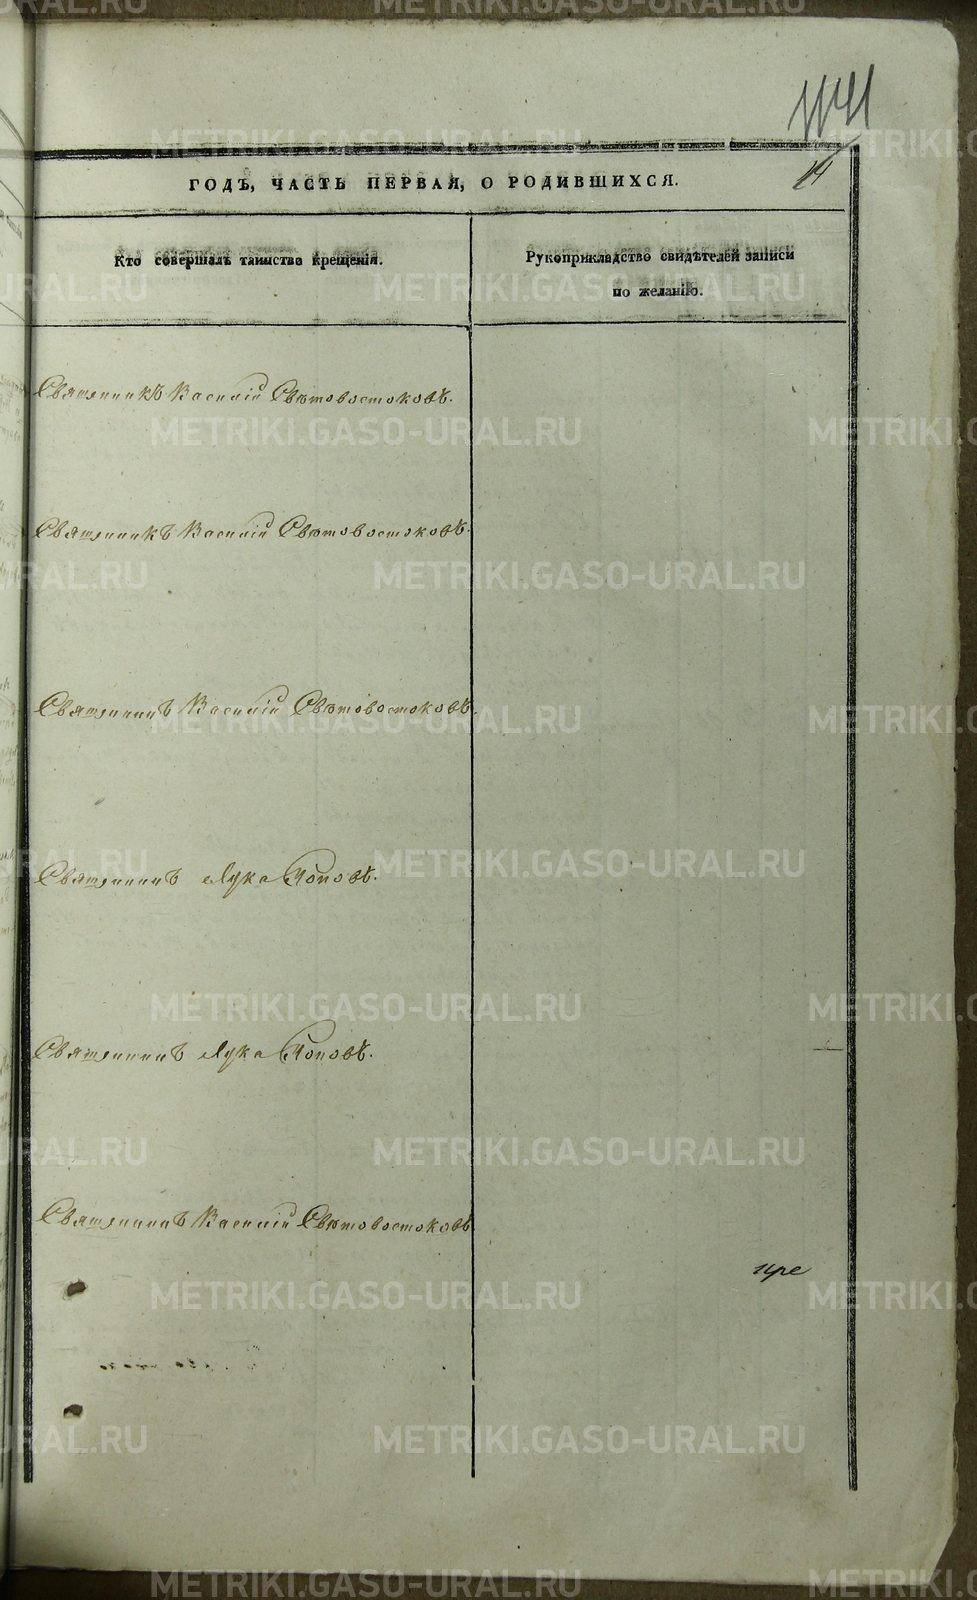 14
ГОДЪ, ЧАСТЬ ПЕРВАЯ, О РОДИВШИХСЯ.
Кто совершалъ таинство крещенія.
Рукоприкладство свидѣтелей записи
по желанію.
Священникъ Василій Свѣтовостоковъ.
Священникъ Василій Свѣтовостоковъ.
Священникъ Василій Свѣтовостоковъ.
Священникъ Лука Поповъ.
Священникъ Лука Поповъ.
Священникъ Василій Свѣтовостоковъ
METRIKI.GASO-URAL.RU